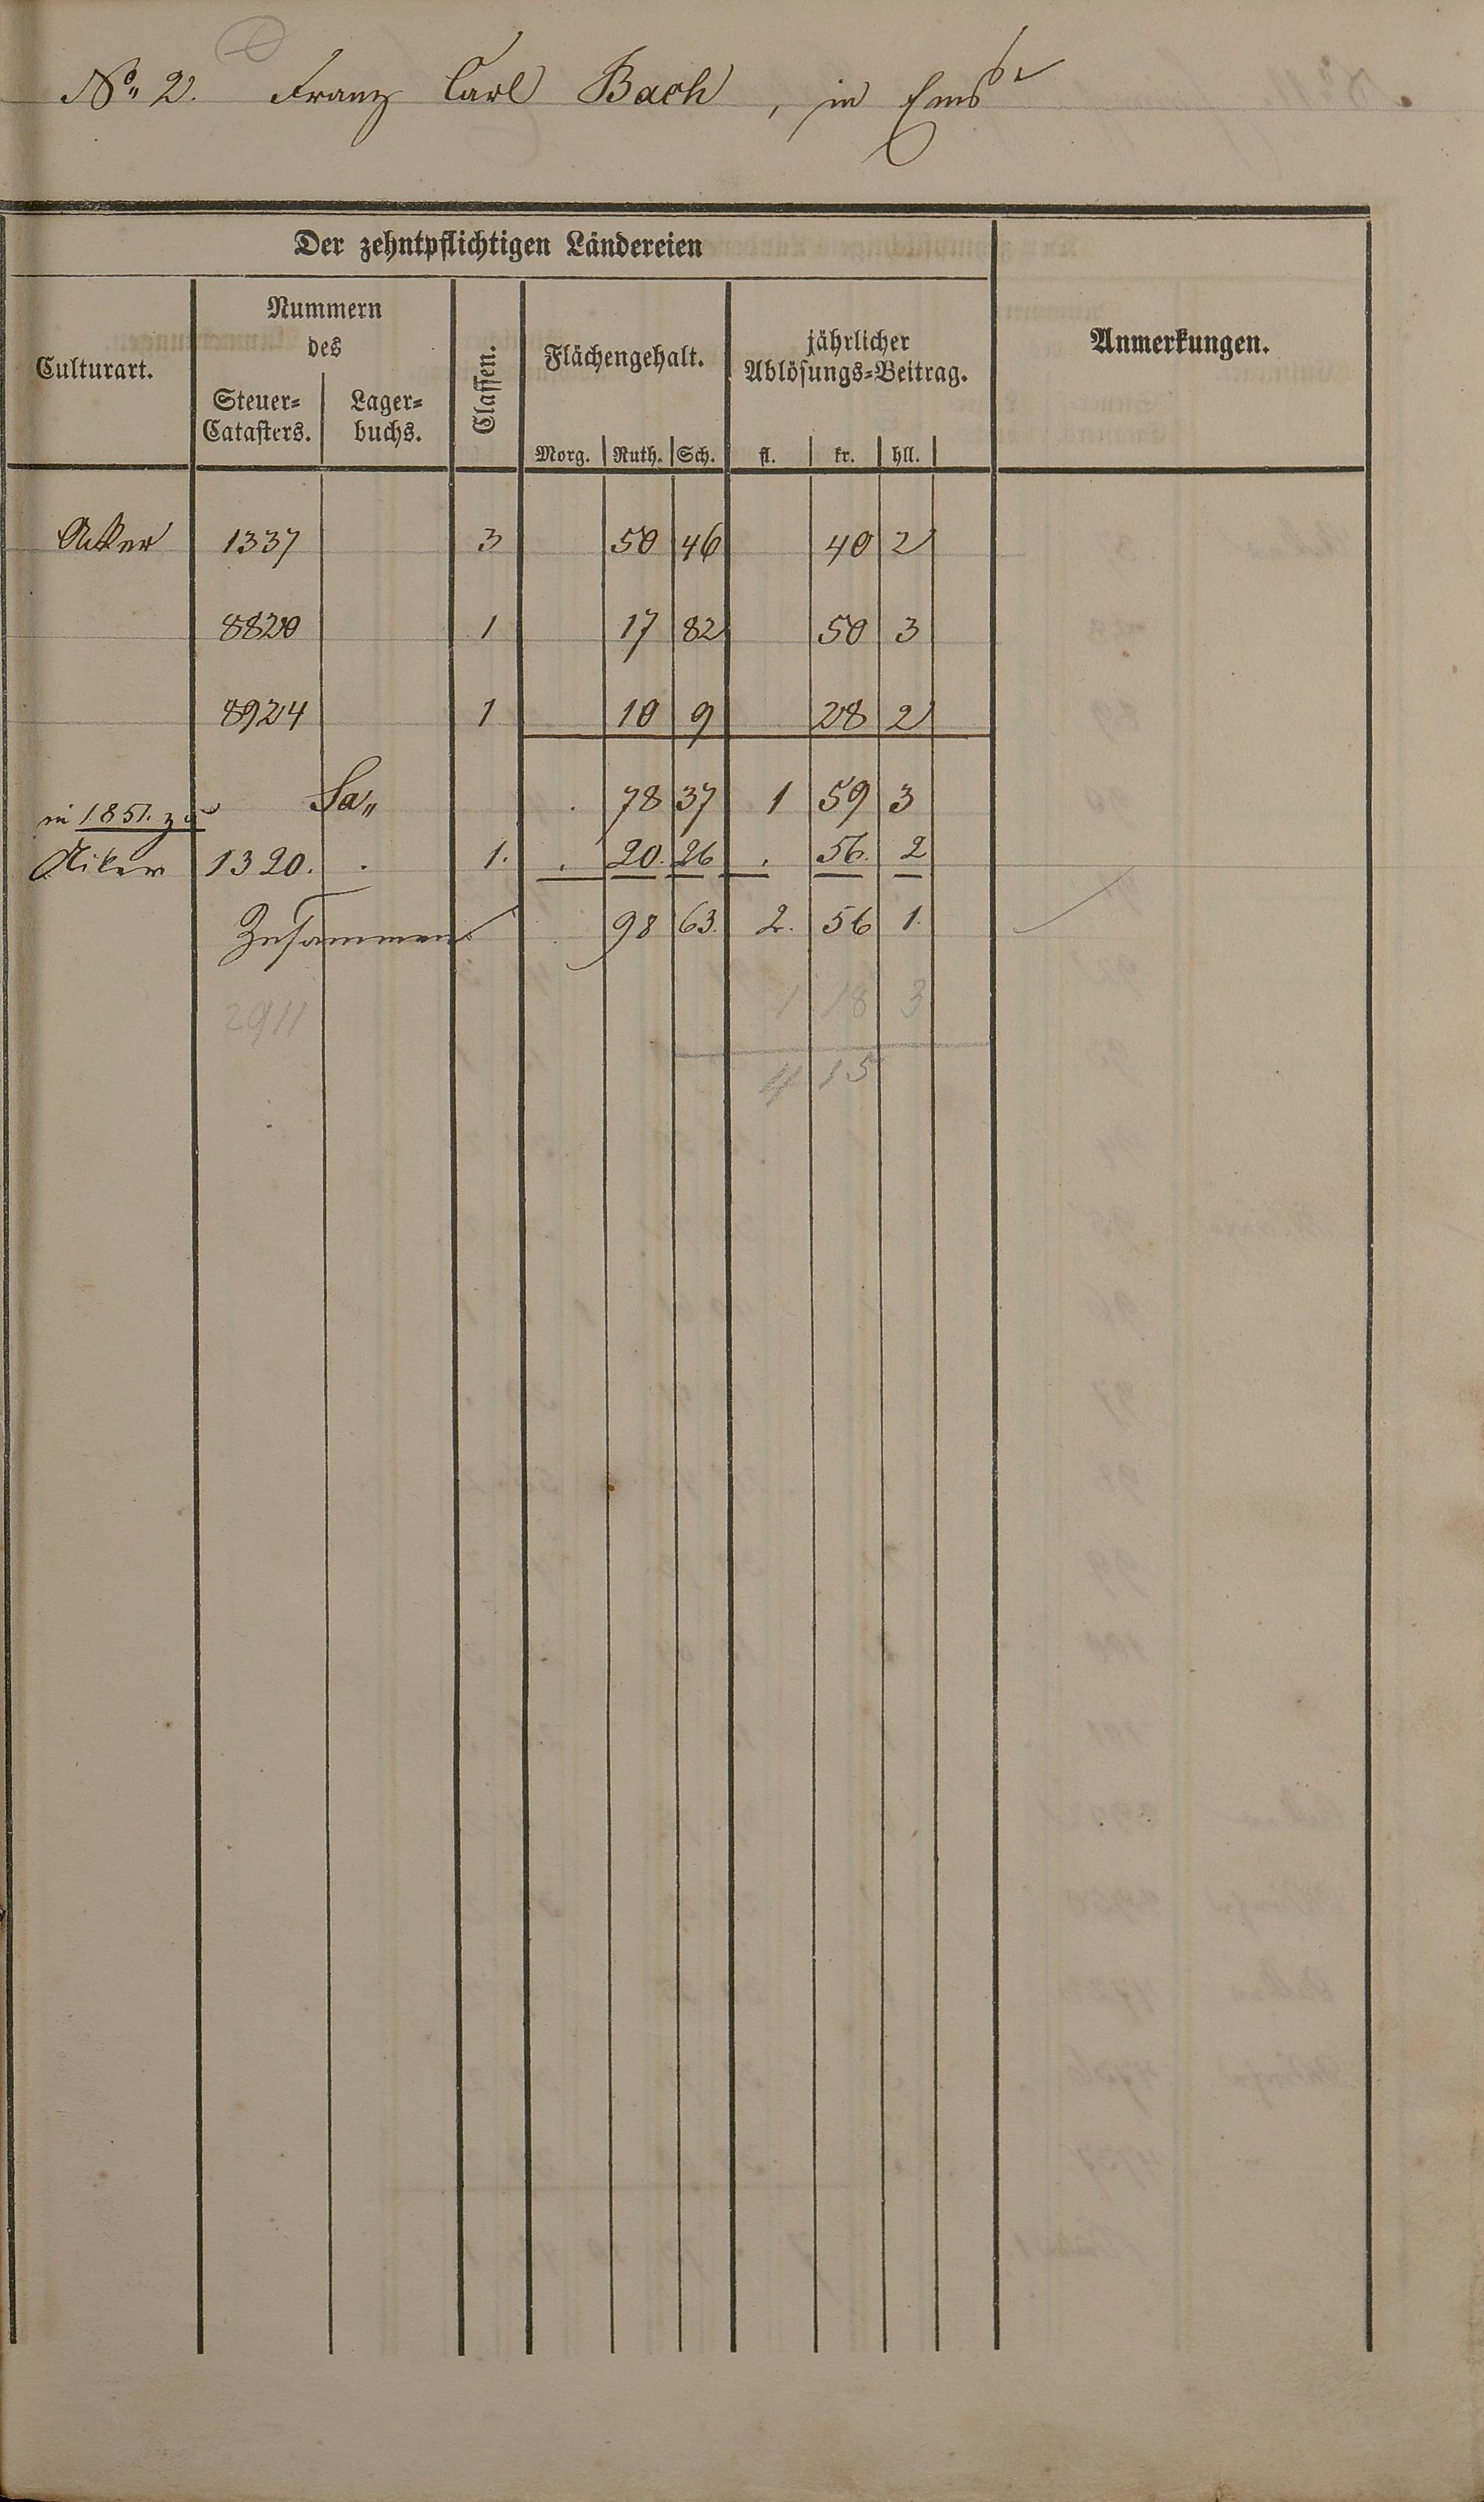 No. 2. Franz Carl Bach, in Ems
Der zehntpflichtigen Ländereien
Culturart.
Nummern
des
Steuer=
Catasters.
Lager=
buchs.
Classen.
Flächengehalt.
Morg. Ruth. Sch.
jährlicher
Ablösungs=Beitrag.
fl. kr. hll.
Anmerkungen.
Acker 1337 3 50 46 40 2
8820 1 17 82 50 3
8924 1 10 9 28 2
Sa„ . 78 37 1 59 3
in 1851. zu
Acker 1320. . 1. . 20. 26 . 56. 2
Zusammen . 98 63. 2. 56 1.
2911 1 18 3
4 15